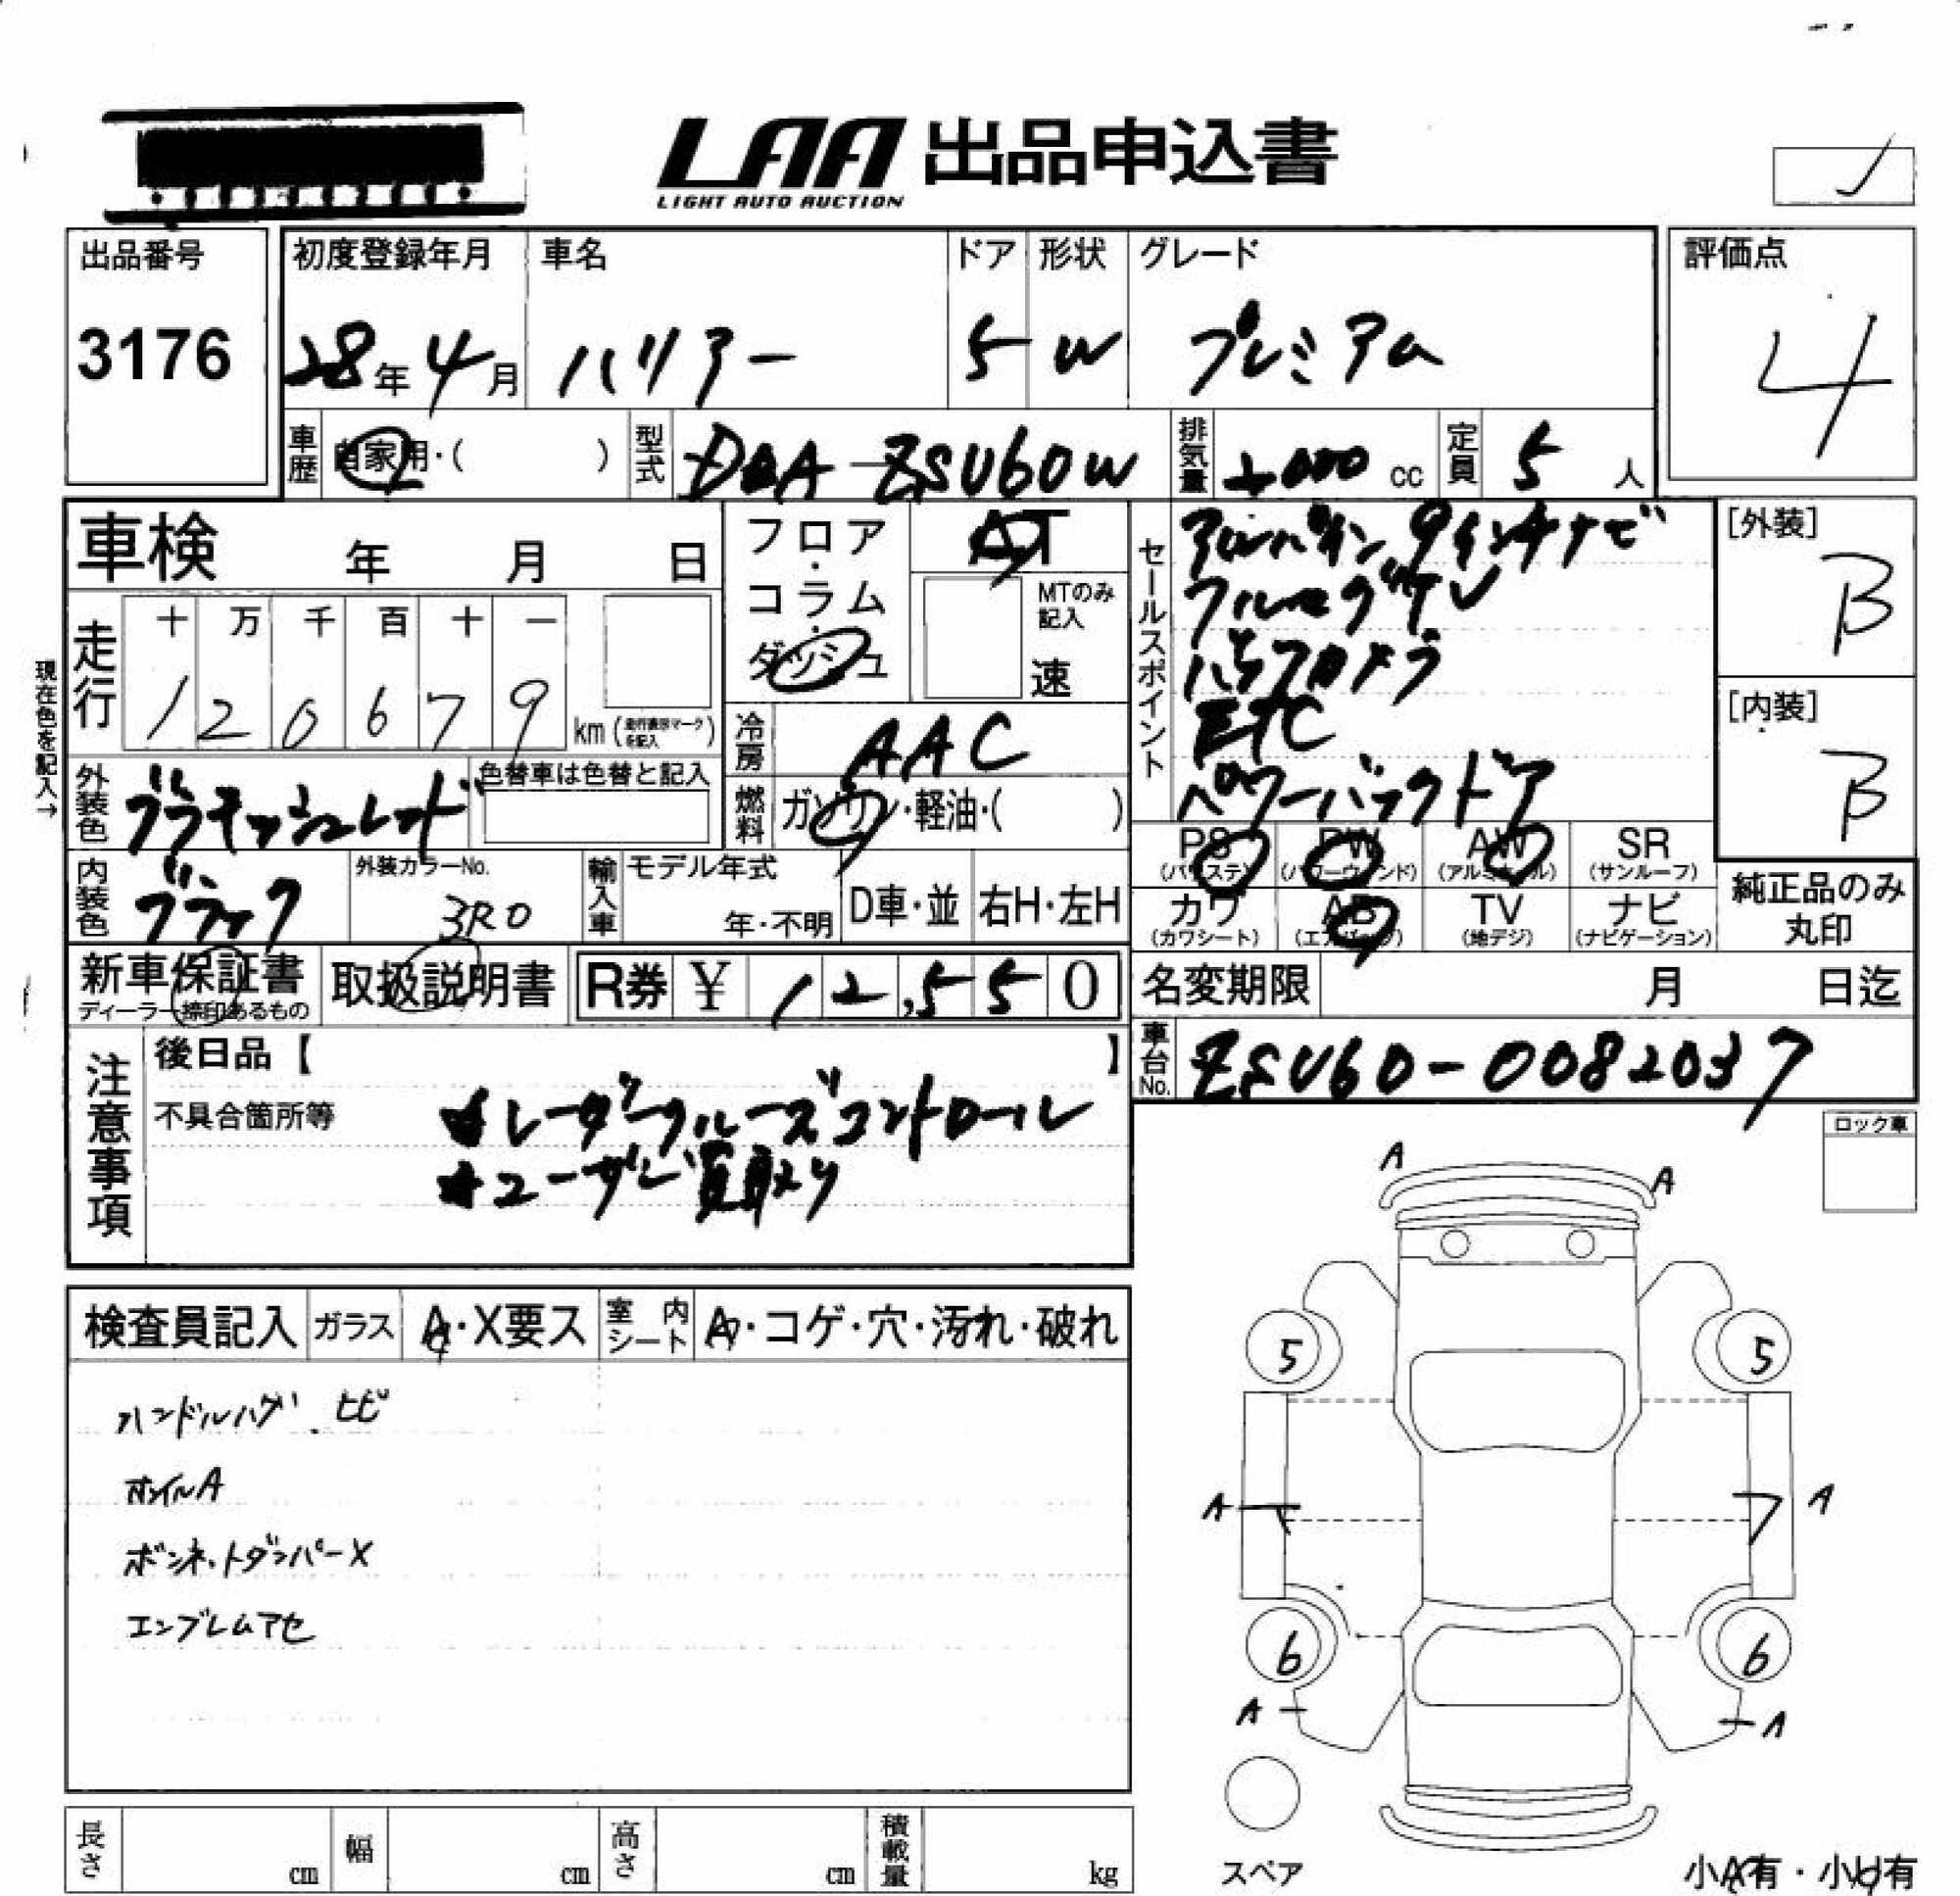 LAA 出品申込書
LIGHT AUTO AUCTION
出品番号
3176
初度登録年月
28年4月
車名
ハリアー
ドア
5
形状
W
グレード
プレミアム
評価点
4
車歴
自家用・( )
型式
DBA-ZSU60W
排気量
2000 cc
定員
5 人
車検 年 月 日
フロア・コラム・ダッシュ
AT
MTのみ記入
速
セールスポイント
アルパイン9インチナビ
フルセグTV
バックカメラ
ETC
パワーバックドア
[外装]
B
[内装]
B
現在色を記入→
走行
十 万 千 百 十 一
1 2 0 6 7 9
km (走行表示マークを記入)
冷房
AAC
外装色
ブラキッシュレッド
色替車は色替と記入
燃料
ガソリン・軽油・( )
内装色
ブラック
外装カラーNo.
3R0
輸入車
モデル年式
年・不明
D車・並
右H・左H
PS
(パワステ)
PW
(パワーウィンド)
AW
(アルミホイール)
SR
(サンルーフ)
カワ
(カワシート)
AB
(エアバッグ)
TV
(地デジ)
ナビ
(ナビゲーション)
純正品のみ
丸印
新車保証書
ディーラー捺印あるもの
取扱説明書
R券 ¥ 12,550
名変期限 月 日迄
車台No.
ZSU60-0082037
注意事項
後日品【 】
不具合箇所等
★レーダークルーズコントロール
★ユーザー買取り
ロック車
検査員記入
ガラス
A・X要ス
室内シート
A・コゲ・穴・汚れ・破れ
ハンドルハゲ、ヒビ
ホイルA
ボンネットダンパーX
エンブレムアセ
A
A
5
5
A
A
6
6
A
A
スペア
小A有・小U有
長さ cm
幅 cm
高さ cm
積載量 kg